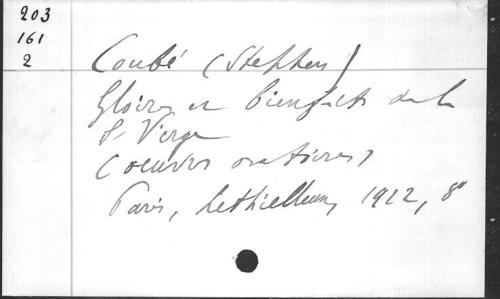 203
161
2
Coubé (Stephen)
Gloires et bienfaits de la
Ste Vierge
(oeuvres oratoires)
Paris, Lethielleux, 1912, 8°